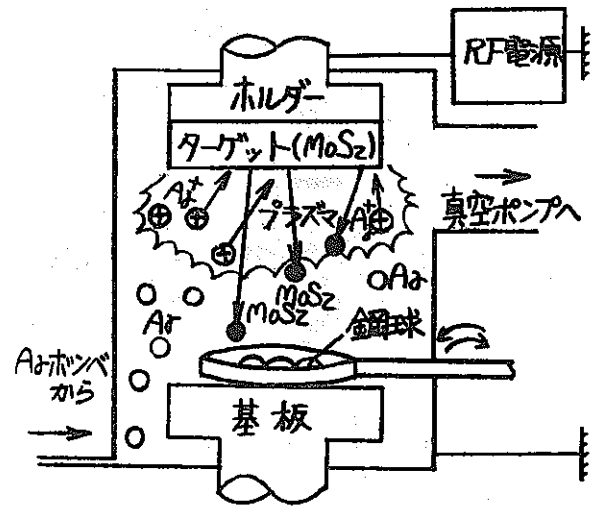 RF電源
ホルダー
ターゲット(MoS2)
Ar+
プラズマ
Ar+
真空ポンプへ
Ar
MoS2
MoS2
Ar
鋼球
Arボンベ
から
基板